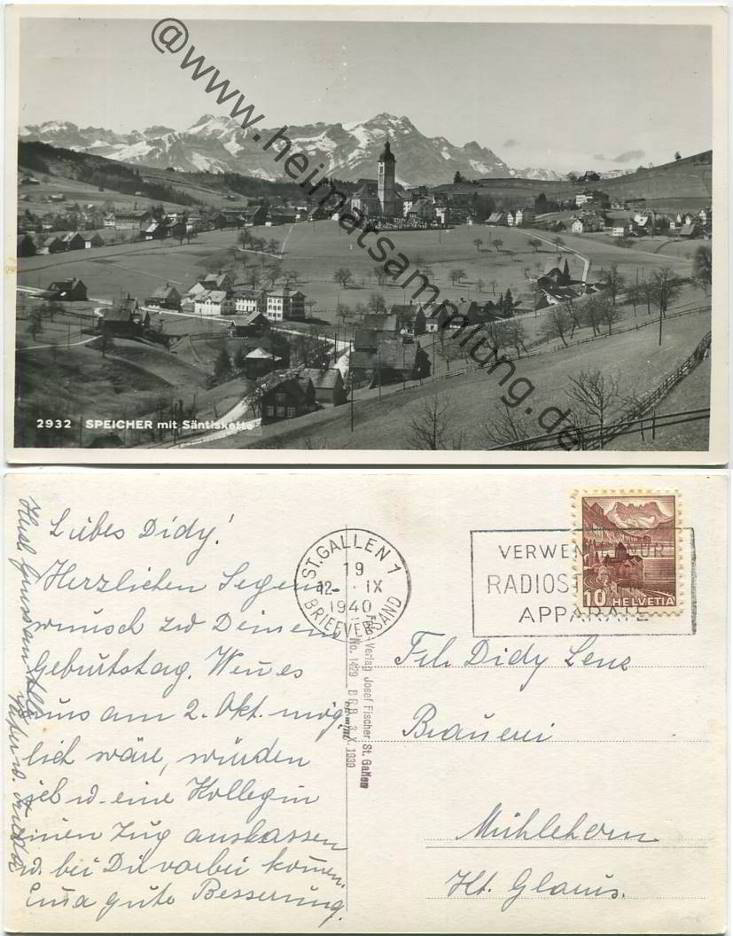 @www.heimatsammlung.de
2932 SPEICHER mit Säntiskette
Liebes Didy!
Herzlichen Segens
wunsch zu Deinem
Geburtstag. Wen es
uns am 2. Okt. mög
lich wäre, würden
ich u. eine Kollegin
einen Zug auslassen
u. bei Dir vorbei komen.
Eusa gute Besserung.
Herzl.
ST. GALLEN 1
19
12- IX
1940
BRIEFVERSAND
VERWENDET NUR
RADIOST
APPARATE
10 HELVETIA
Foto-Verlag Josef Fischer St. Gallen
No. 1429 B.R.B. 3. X. 1939
Frl. Didy Lenz
Brauerei
Mühlehorn
Kt. Glarus.